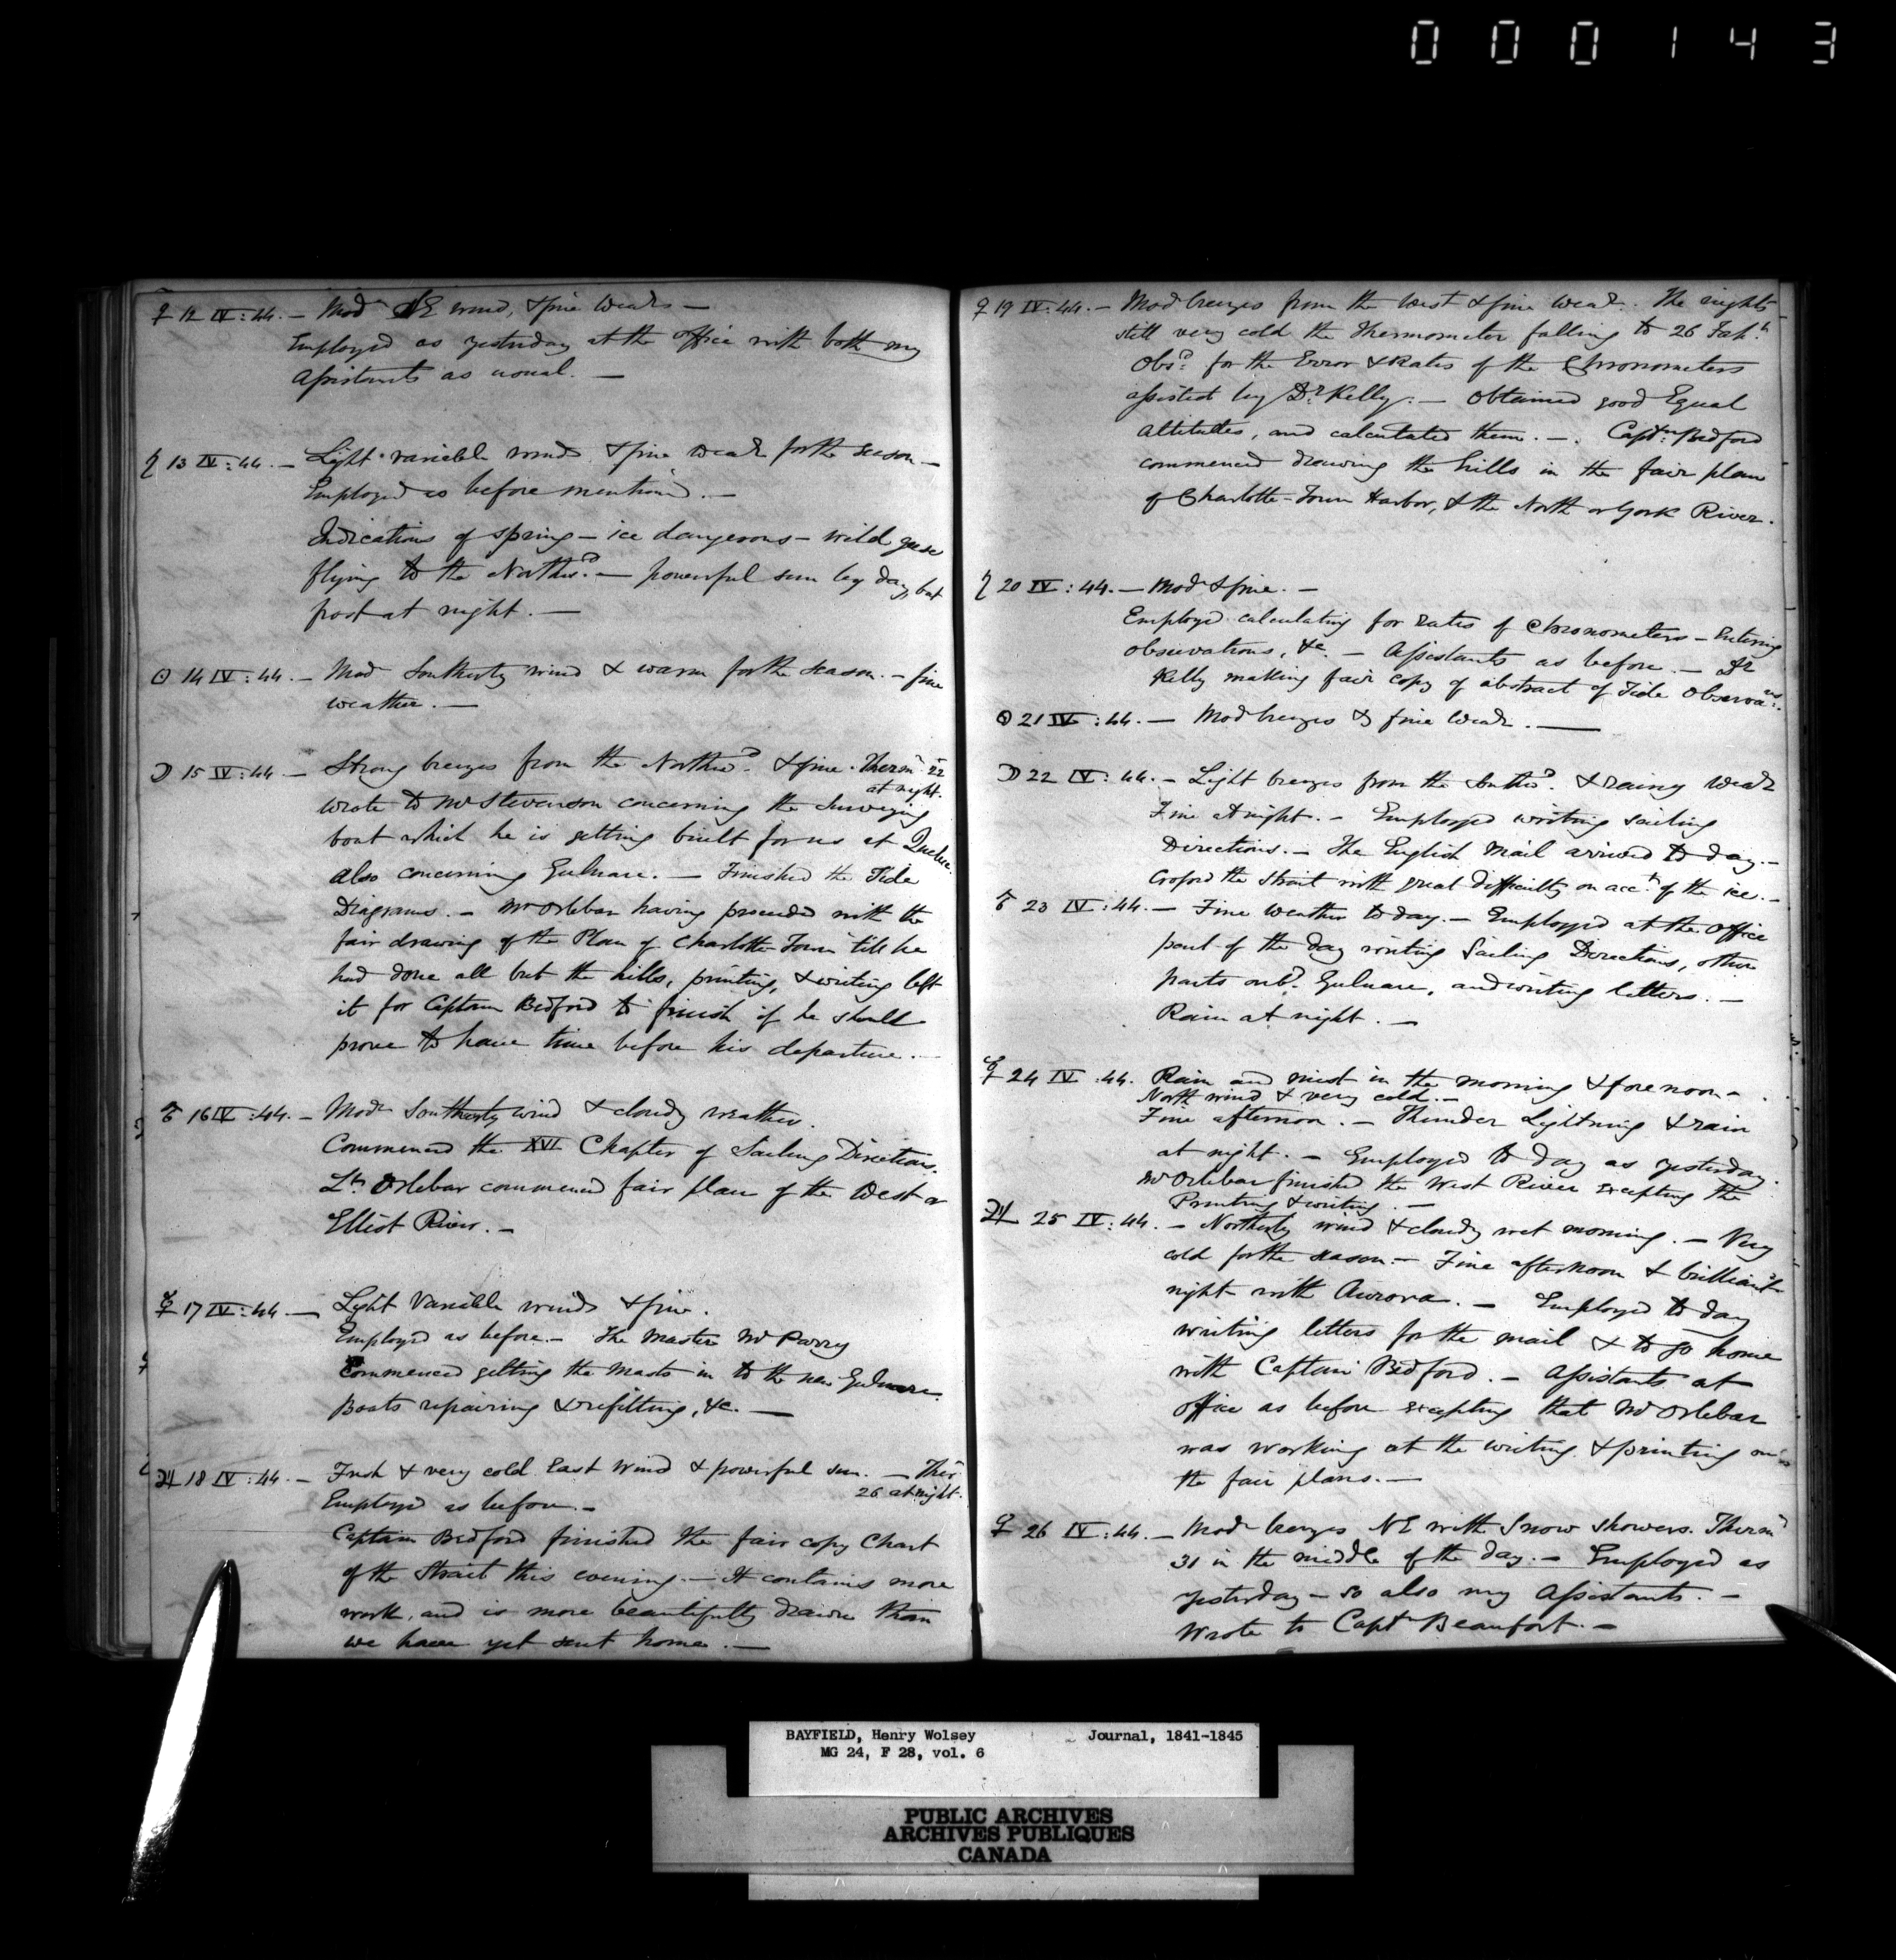 000143
♀ 12 IV:44. — Modr NE wind, & fine Weathr —
Employed as yesterday at the office with both my
Assistants as usual. —
♄ 13 IV:44. — Light variable winds & fine weathr for the season —
Employed as before mentioned. —
Indications of spring — ice dangerous — wild geese
flying to the Northwd. — powerful sun by day, but
frost at night. —
☉ 14 IV:44. — Modr Southerly wind & warm for the season. — fine
weather. —
☽ 15 IV:44 — Strong breezes from the Northwd. & fine. Thermr 22
at night.
Wrote to Mr Stevenson concerning the Surveying
boat which he is getting built for us at Quebec.
Also concerning Gulnare. — Finished the Tide
Diagrams. — Mr Orlebar having proceeded with the
fair drawing of the Plan of Charlotte-Town till he
had done all but the hills, printing, & writing left
it for Captain Bedford to finish if he should
prove to have time before his departure. —
♂ 16 IV:44. — Modr Southerly wind & cloudy weather.
Commenced the XVI Chapter of Sailing Directions.
Lt. Orlebar commenced fair plan of the West or
Elliot River. —
☿ 17 IV:44 — Light Variable winds & fine.
Employed as before. — The Master Mr Parry
commenced getting the Masts in to the new Gulnare.
Boats repairing & refitting, &c. —
♃ 18 IV:44. — Fresh & very cold East Wind & powerful sun. — Ther
26 at night.
Employed as before. —
Captain Bedford finished the fair copy Chart
of the Strait this evening. — It contains more
work, and is more beautifully drawn than
we have yet sent home. —
♀ 19 IV:44. — Mod breezes from the West & fine Weathr. The nights
still very cold the Thermometer falling to 26 Fah.t
Obsd. for the Error & Rates of the Chronometers
assisted by Dr. Kelly. — Obtained good Equal
Altitudes, and calculated them. —. Captn. Bedford
commenced drawing the hills in the fair plan
of Charlotte-Town Harbor, & the North or York River.
♄ 20 IV:44. — Modr & fine. —
Employed calculating for Rates of Chronometers — Entering
observations, &c. — Assistants as before. — Dr
Kelly making fair copy of abstract of Tide Observans.
☉ 21 IV:44. — Mod breezes & fine Weathr. —
☽ 22 IV:44. — Light breezes from the Southwd. & rainy Weathr
Fine at night. — Employed writing sailing
Directions. — The English Mail arrived to day. —
Crossed the Strait with great difficulty on acct. of the ice. —
♂ 23 IV:44. — Fine Weather to day. — Employed at the Office
part of the day writing Sailing Directions, other
parts onbd. Gulnare, and writing letters. —
Rain at night. —
☿ 24 IV:44. Rain and mist in the morning & forenoon —
North wind & very cold. —
Fine afternoon. — Thunder Lightning & rain
at night. — Employed to day as yesterday.
Mr Orlebar finished the West River excepting the
Printing & writing. —
♃ 25 IV:44. — Northerly wind & cloudy wet morning. — Very
cold for the season. — Fine afternoon & brilliant
night with Aurora. — Employed to day
writing letters for the mail & to go home
with Captain Bedford. — Assistants at
office as before excepting that Mr Orlebar
was working at the writing & printing on
the fair plans. —
♀ 26 IV:44. — Modr breezes NE with Snow showers. Thermr
31 in the middle of the day. — Employed as
yesterday — so also my Assistants. —
Wrote to Captn Beaufort. —
BAYFIELD, Henry Wolsey Journal, 1841-1845
MG 24, F 28, vol. 6
PUBLIC ARCHIVES
ARCHIVES PUBLIQUES
CANADA